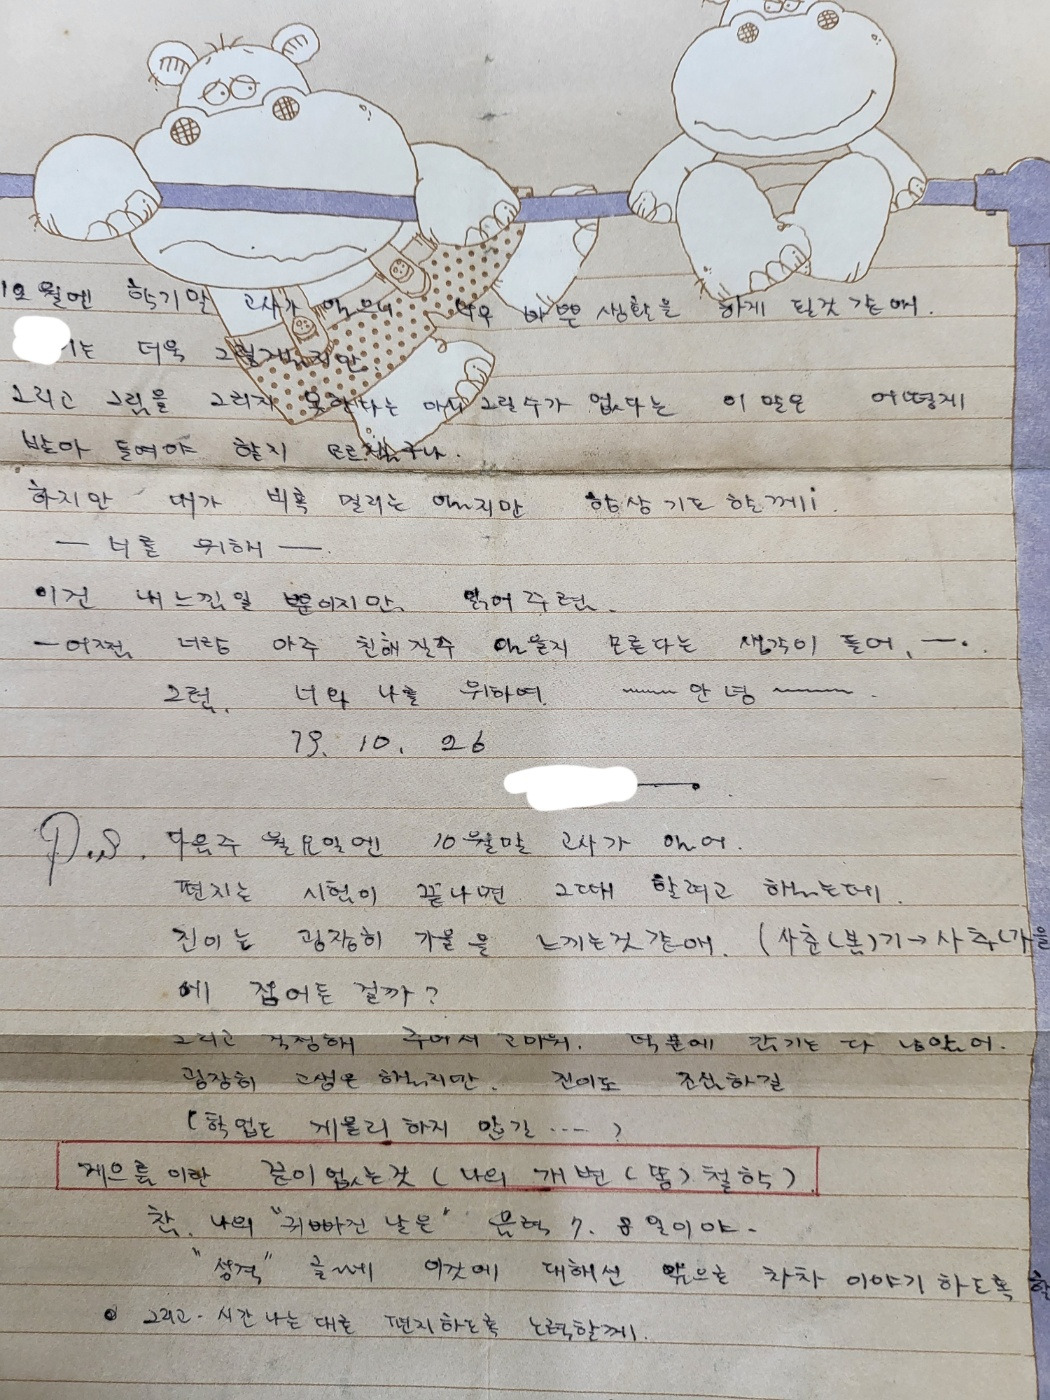 12월엔 학기말 고사가 있으니 너무 바쁜 생활을 하게 될것 같애.
는 더욱 그렇겠지만
그리고 그림을 그리지 못한다는 아니 그릴수가 없다는 이 말은 어떻게
받아 들여야 할지 모르겠구나.
하지만 내가 비록 멀리는 있지만 항상 기도 할께!.
— 너를 위해 —.
이건 내 느낌일 뿐이지만. 읽어 주렴.
— 어쩜, 너랑 아주 친해질수 있을지 모른다는 생각이 들어. —.
그럼. 너와 나를 위하여. 안녕
79. 10. 26
P.S. 다음주 월요일엔 10월말 고사가 있어.
편지는 시험이 끝나면 그때 할려고 하는데.
진이는 굉장히 가을을 느끼는것 같애. (사춘(봄)기→사추(가을
에 접어든 걸까?
그리고 걱정해 주어서 고마워. 덕분에 감기는 다 나았어.
굉장히 고생은 했지만. 진이도 조심하길
(학업도 게을리 하지 말길 ···· ?
게으름 이란 끝이 없는것 (나의 개변(똥)철학)
참. 나의 "귀빠진 날은" 음력 7. 8일이야.
"성격" 글쎄 이것에 대해선 앞으로 차차 이야기 하도록 할
• 그리고. 시간 나는 대로 편지하도록 노력할께.